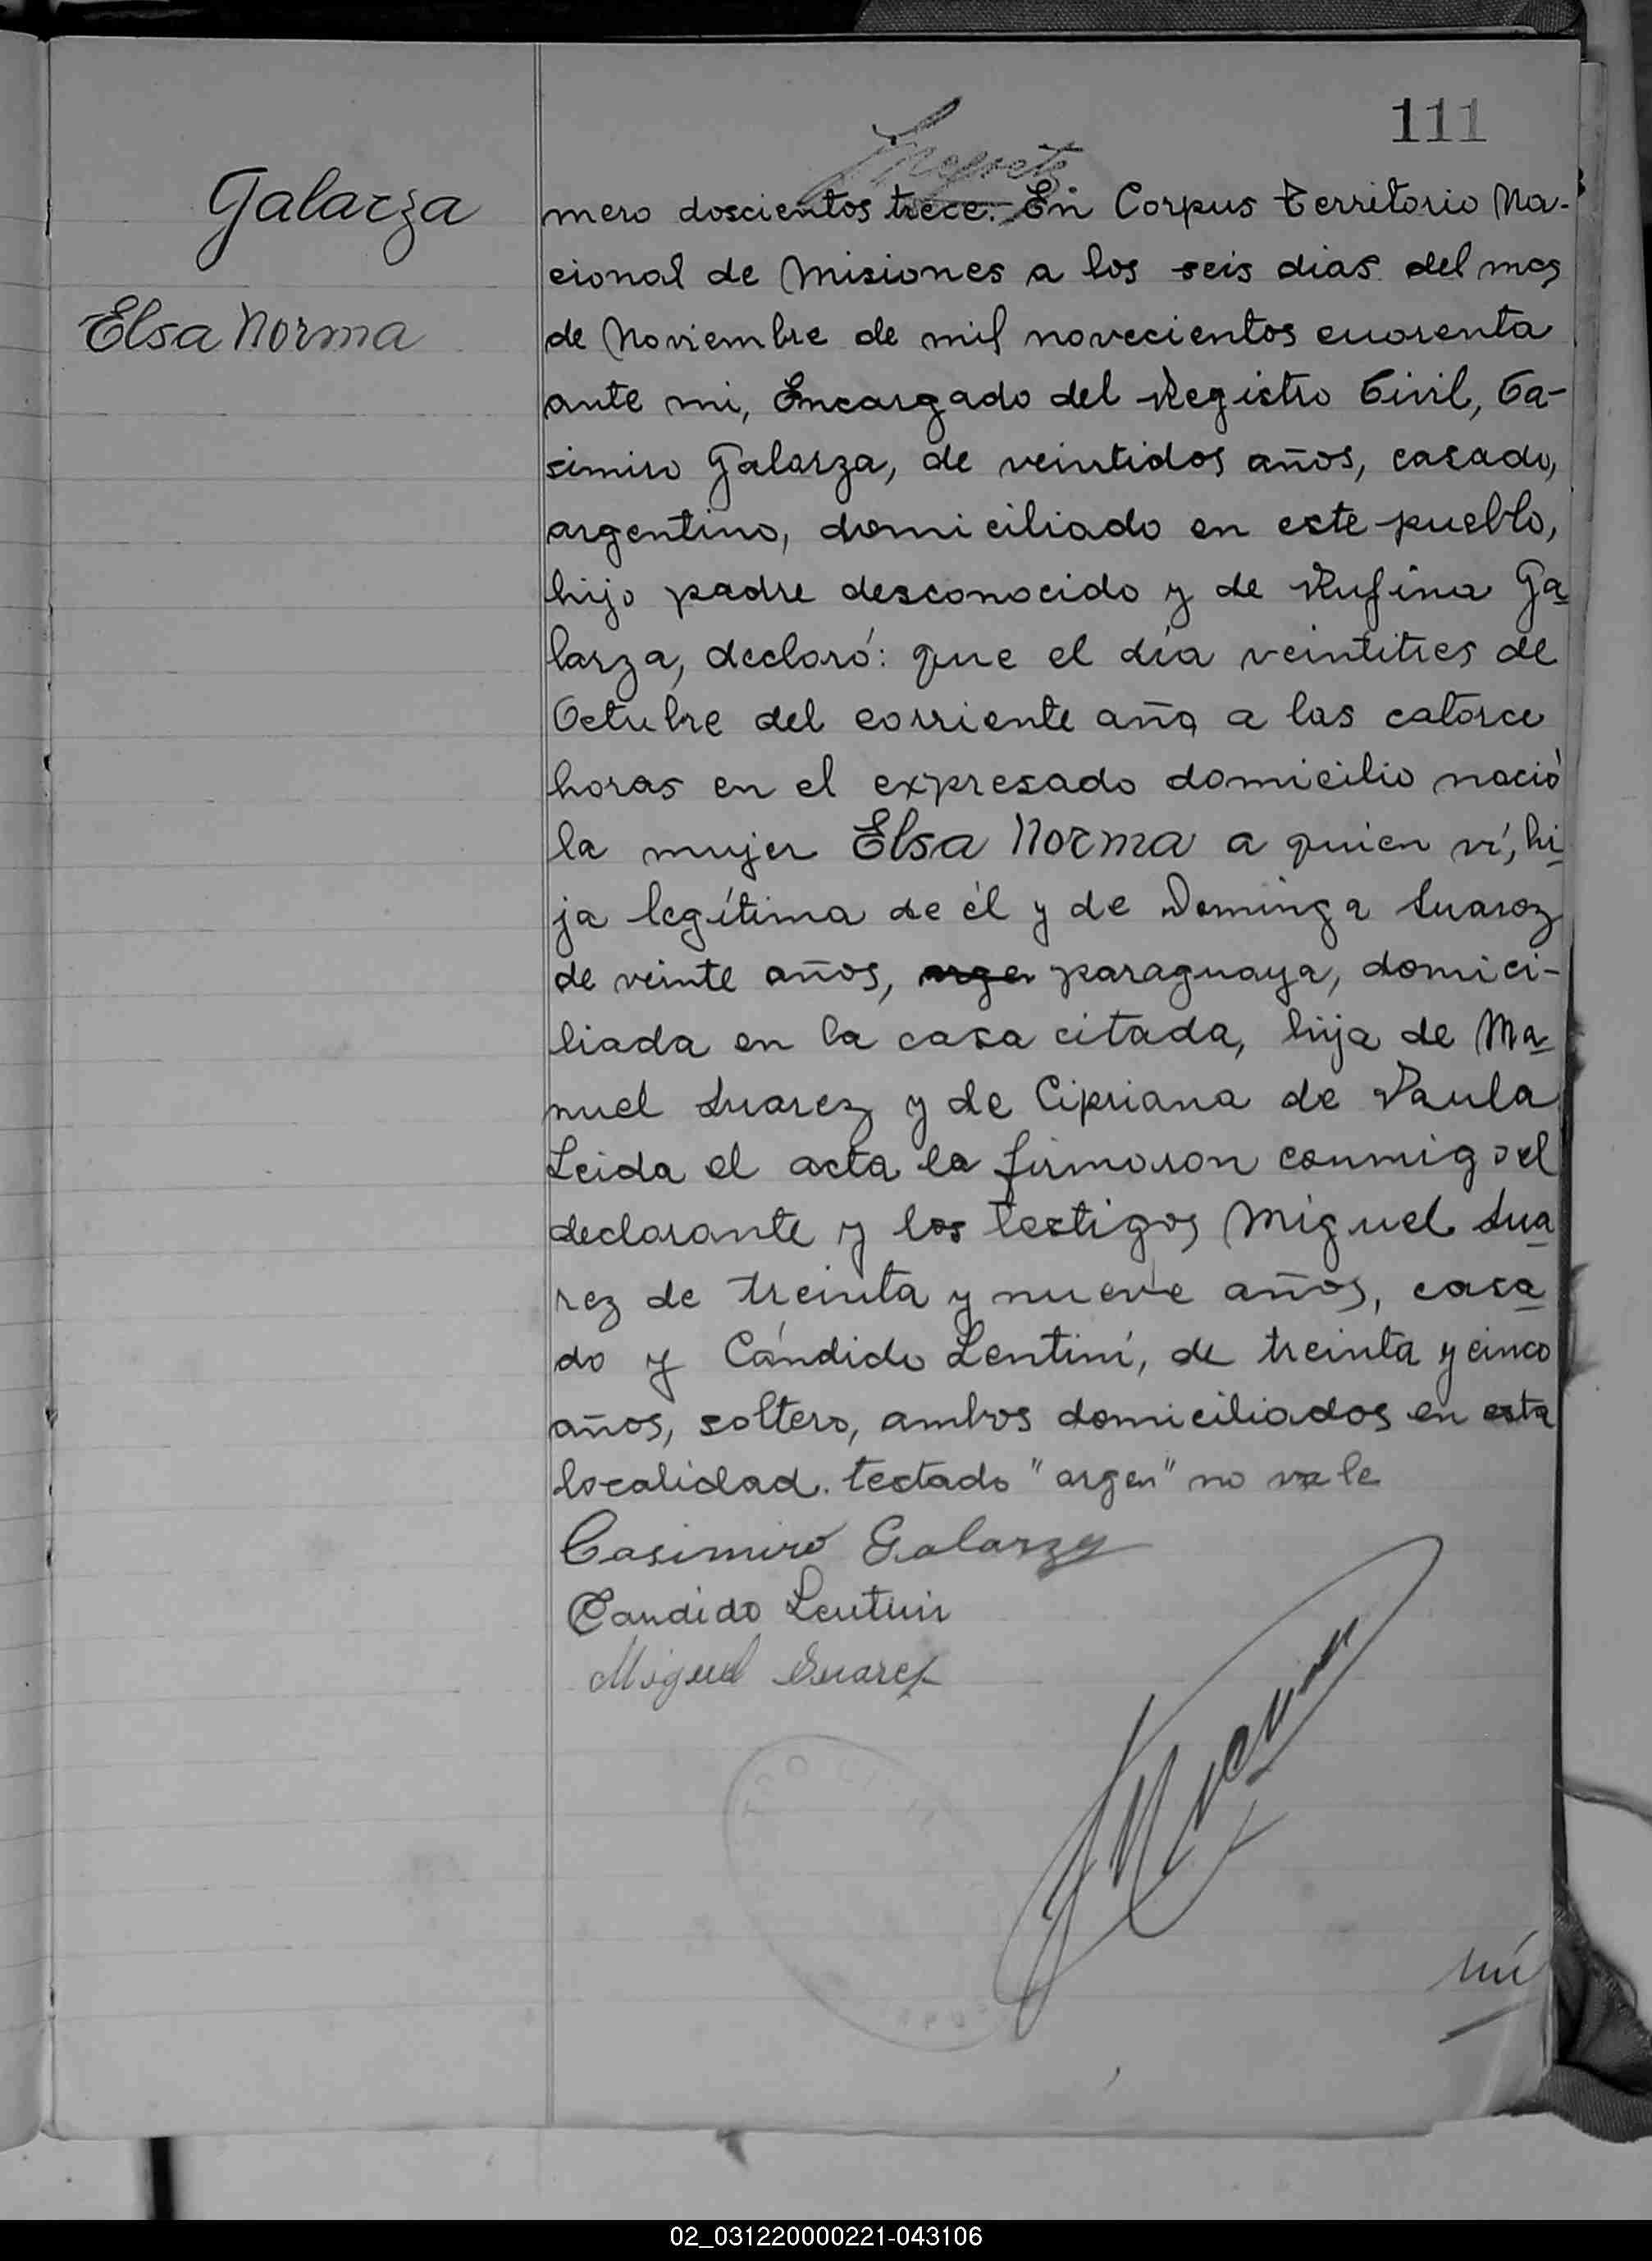 111
Galarza
Elsa Norma
mero doscientos trece. En Corpus Territorio Na-
cional de Misiones a los seis dias del mes
de Noviembre de mil novecientos cuarenta
ante mi, Encargado del Registro Civil, Ca-
simiro Galarza, de veintidos años, casado,
argentino, domiciliado en este pueblo,
hijo padre desconocido y de Rufina Ga
larza, declaró: que el día veintitres de
Octubre del corriente año a las catorce
horas en el expresado domicilio nació
la mujer Elsa Norma a quien ví, hi
ja legítima de él y de Dominga Suarez
de veinte años, argen paraguaya, domici-
liada en la casa citada, hija de Ma
nuel Suarez y de Cipriana de Paula
Leida el acta la firmaron conmigo el
declarante y los testigos Miguel Sua
rez de treinta y nueve años, casa
do y Cándido Lentini, de treinta y cinco
años, soltero, ambos domiciliados en esta
localidad. testado "argen" no vale
Casimiro Galarza
Candido Lentini
Miguel Suarez
nú
02_031220000221-043106